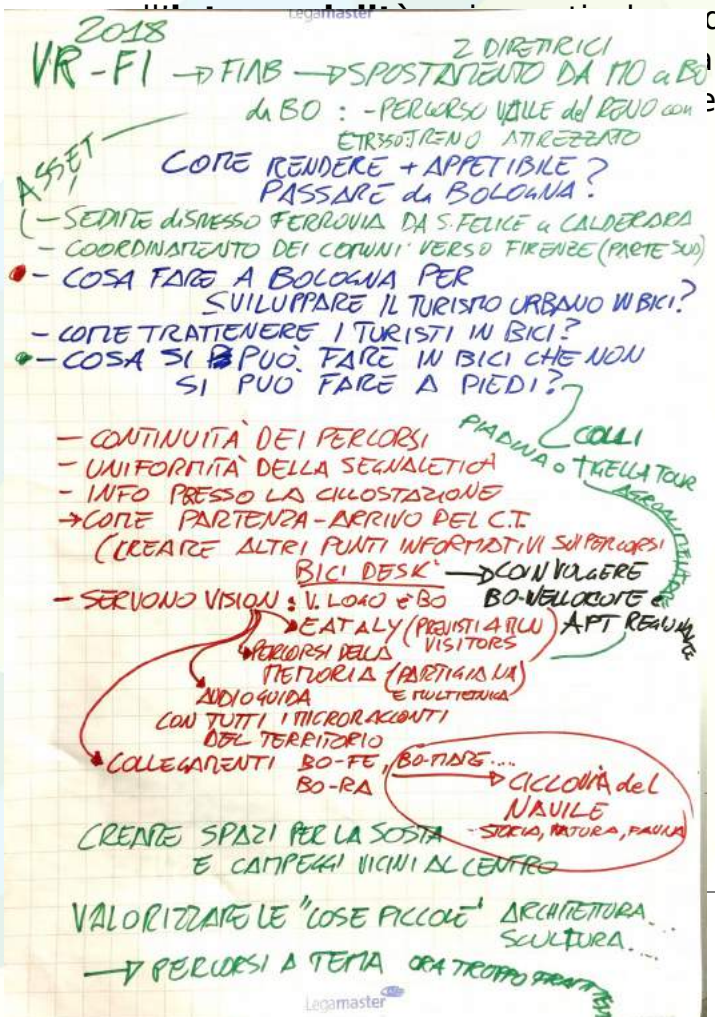 Legamaster
2018
2 DIRETTRICI
VR-FI → FIAB → SPOSTAMENTO DA MO a BO
da BO : - PERCORSO VALLE del RENO con
TRENO ATTREZZATO
ASSET
COME RENDERE + APPETIBILE ?
PASSARE da BOLOGNA ?
- SEDIME DISMESSO FERROVIA DA S. FELICE a CALDERARA
- COORDINAMENTO DEI COMUNI VERSO FIRENZE (PARTE SUD)
- COSA FARE A BOLOGNA PER
SVILUPPARE IL TURISMO URBANO IN BICI?
- COME TRATTENERE I TURISTI IN BICI?
- COSA SI PUÒ FARE IN BICI CHE NON
SI PUÒ FARE A PIEDI?
COLLI
PIADINA o TIGELLA TOUR
- CONTINUITÀ DEI PERCORSI
- UNIFORMITÀ DELLA SEGNALETICA
- INFO PRESSO LA CICLOSTAZIONE
→ COME PARTENZA-ARRIVO DEL C.T.
(CREARE ALTRI PUNTI INFORMATIVI SUI PERCORSI
BICI DESK → COINVOLGERE
BO-WELLCOME e
APT REGIONALE
- SERVONO VISION : V. LOGO è BO
EATALY (PREVISTI 4 MLN
VISITORS)
PERCORSI DELLA
MEMORIA (PARTIGIANA
E MULTIETNICA)
AUDIOGUIDA
CON TUTTI I MICRORACCONTI
DEL TERRITORIO
COLLEGAMENTI BO-FE, BO-MARE....
BO-RA
CICLOVIA del
NAVILE
- STORIA, NATURA, FAUNA
CREARE SPAZI PER LA SOSTA
E CAMPEGGI VICINI AL CENTRO
VALORIZZARE LE "COSE PICCOLE" ARCHITETTURA...
SCULTURA....
→ PERCORSI A TEMA ORA TROPPO
Legamaster